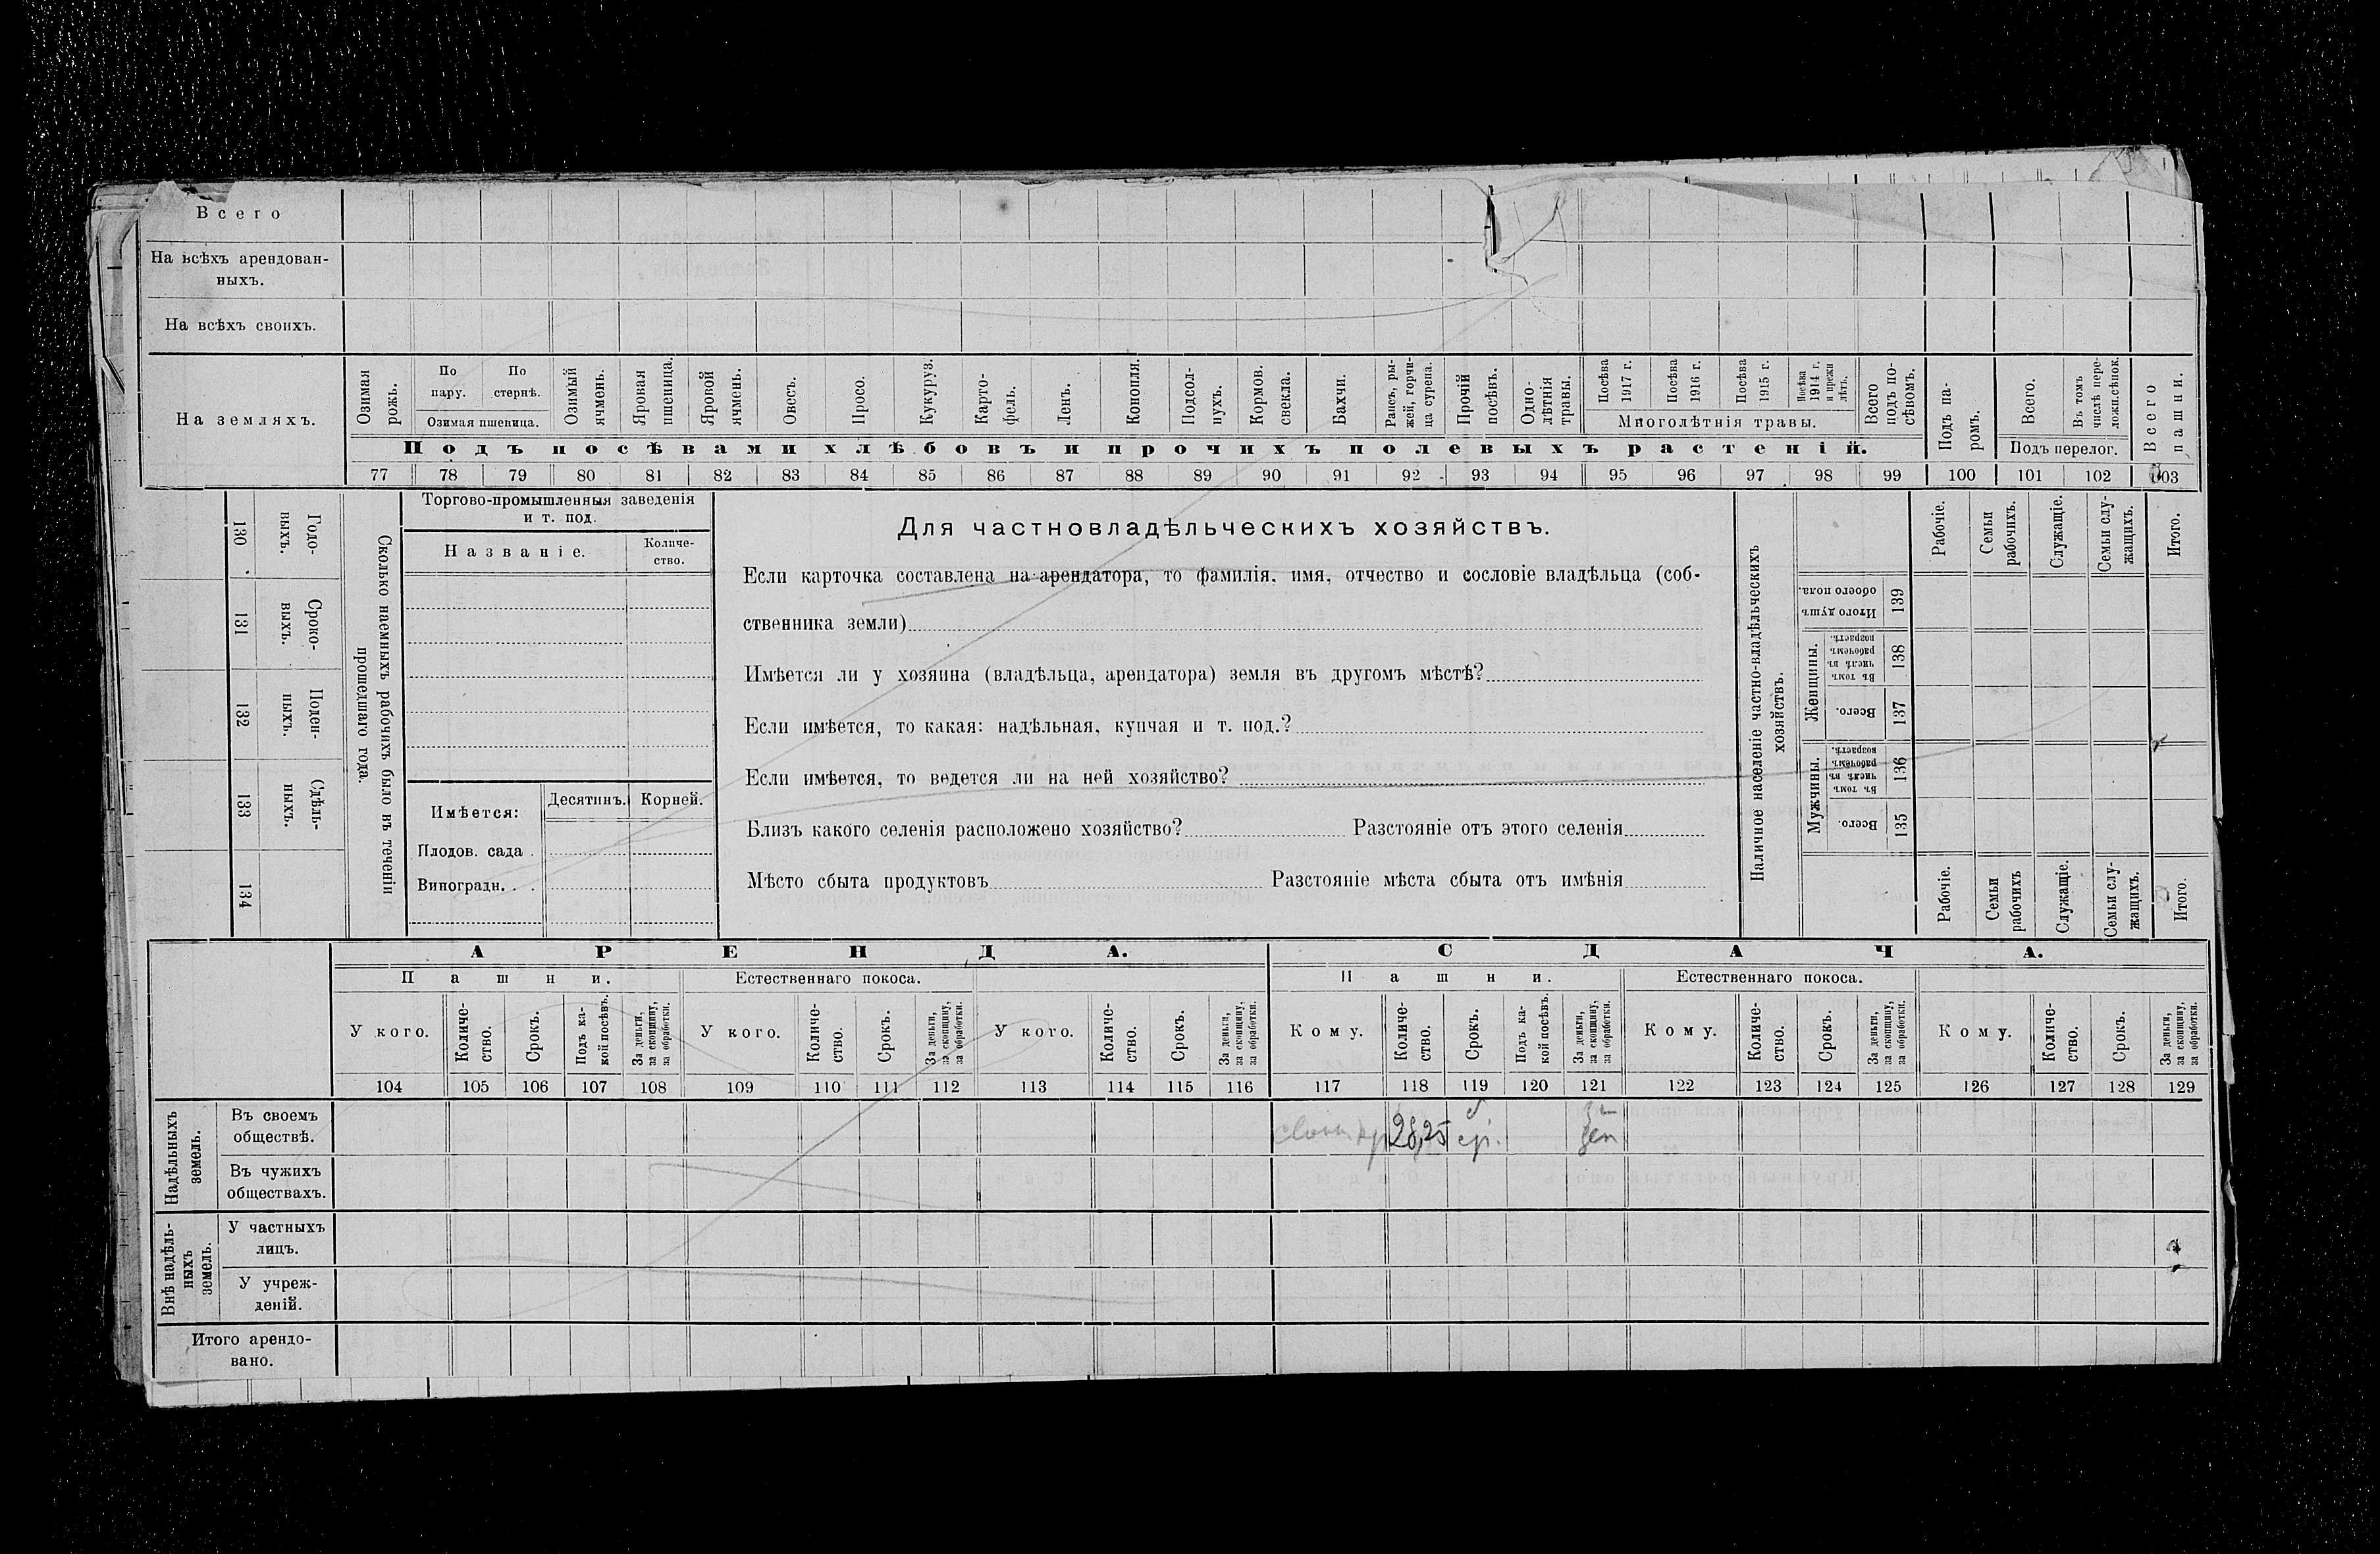 Всего
На всѣхъ арендован-
ныхъ.
На всѣхъ своихъ.
На земляхъ.
Озимая рожь.
По пару.
По стернѣ.
Озимая пшеница.
Озимый ячмень.
Яровая пшеница.
Яровой ячмень.
Овесъ.
Просо.
Кукуруз.
Карто-
фель.
Ленъ.
Конопля.
Подсол-
нухъ.
Кормов. свекла.
Бахчи.
Рапсъ, ры-
жей, горчи-
ца сурепа.
Прочій посѣвъ.
Одно-
лѣтнія травы.
Посѣва 1917 г.
Посѣва 1916 г.
Посѣва 1915 г.
Посѣва 1914 г. и прежн лѣтъ.
Многолѣтнія травы.
Всего подъ по-
сѣвомъ.
Подъ посѣвами хлѣбовъ и прочихъ полевыхъ растеній.
Подъ па-
ромъ.
Всего.
Въ томъ числѣ пере-
ложн.сѣнок.
Подъ перелог.
Всего пашни.
77 78 79 80 81 82 83 84 85 86 87 88 89 90 91 92 93 94 95 96 97 98 99 100 101 102 103
Годо-
выхъ.
130
Сроко-
выхъ.
131
Поден-
ныхъ.
132
Сдѣль-
ныхъ.
133
134
Сколько наемныхъ рабочихъ было въ теченіи
прошедшаго года.
Торгово-промышленныя заведенія
и т. под.
Названіе.
Количе-
ство.
Имѣется:
Десятинъ.
Корней.
Плодов. сада .
Виноградн. . .
Для частновладѣльческихъ хозяйствъ.
Если карточка составлена на арендатора, то фамилія, имя, отчество и сословіе владѣльца (соб-
ственника земли)
Имѣется ли у хозяина (владѣльца, арендатора) земля въ другомъ мѣстѣ?
Если имѣется, то какая: надѣльная, купчая и т. под.?
Если имѣется, то ведется ли на ней хозяйство?
Близъ какого селенія расположено хозяйство? Разстояніе отъ этого селенія
Мѣсто сбыта продуктовъ Разстояніе мѣста сбыта отъ имѣнія
Наличное населеніе частно-владѣльческихъ
хозяйствъ.
Рабочіе.
Семьи рабочихъ.
Служащіе.
Семьи слу-
жащихъ.
Итого.
Итого душъ обоего пола.
139
Женщины.
Въ томъ числѣ въ рабочемъ возрастѣ.
138
Всего.
137
Мужчины.
Въ томъ числѣ въ рабочемъ возрастѣ.
136
Всего.
135
Рабочіе.
Семьи рабочихъ
Служащіе.
Семьи слу-
жащихъ.
Итого.
АРЕНДА.
СДАЧА.
Пашни.
Естественнаго покоса.
Пашни.
Естественнаго покоса.
У кого.
Количе-
ство.
Срокъ.
Подъ ка-
кой посѣвъ.
За деньги, за скопщину, за обработки.
У кого.
Количе-
ство.
Срокъ.
За деньги, за скопщину, за обработки.
У кого.
Количе-
ство.
Срокъ.
За деньги, за скопщину, за обработки.
Кому.
Количе-
ство.
Срокъ.
Подъ ка-
кой посѣвъ.
За деньги, за скопщину, за обработки.
Кому.
Количе-
ство.
Срокъ.
За деньги, за скопщину, за обработки.
Кому.
Количе-
ство.
Срокъ.
За деньги, за скопщину, за обработки.
104 105 106 107 108 109 110 111 112 113 114 115 116 117 118 119 120 121 122 123 124 125 126 127 128 129
Надѣльныхъ земель.
Въ своемъ
обществѣ.
28,25
Въ чужихъ
обществахъ.
Внѣ надѣль-
ныхъ земель.
У частныхъ
лицъ.
У учреж-
деній.
Итого арендо-
вано.